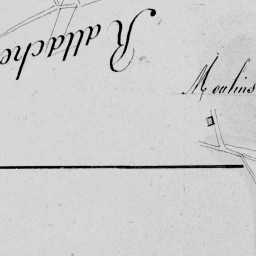 Rattache
Moulins